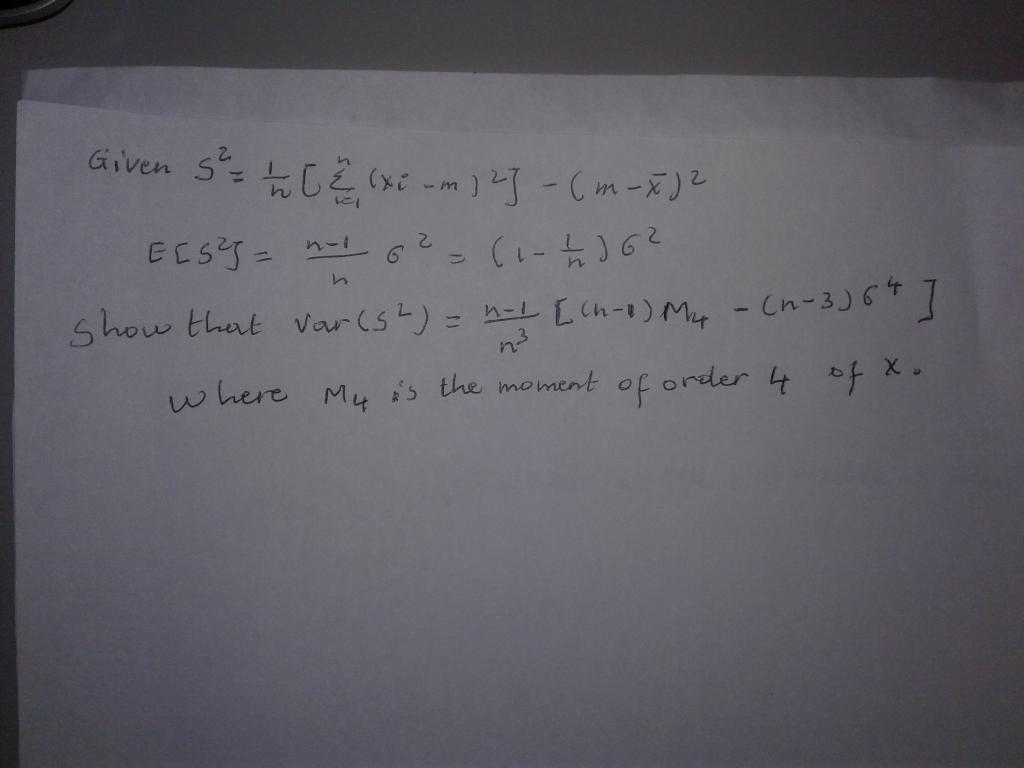 Given S² = 1/n [Σⁿᵢ₌₁ (xi - m)²] - (m - x̄)²
E[S²] = n-1/n σ² = (1 - 1/n) σ²
Show that var(S²) = n-1/n³ [(n-1) M₄ - (n-3) σ⁴]
where M₄ is the moment of order 4 of x.